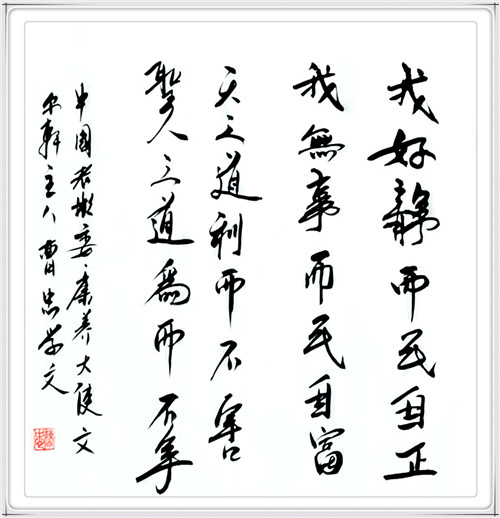 我好靜而民自正
我無事而民自富
天之道利而不害
聖人之道為而不爭
中國老齡委康养大使文
尔軒主人曹忠学文